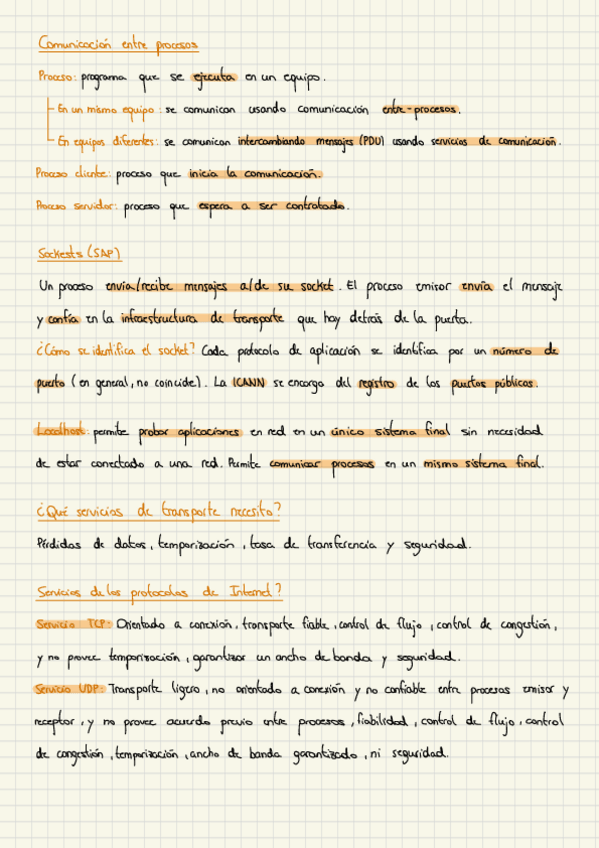 Comunicación entre procesos
Proceso: programa que se ejecuta en un equipo.
En un mismo equipo: se comunican usando comunicación entre-procesos.
En equipos diferentes: se comunican intercambiando mensajes (PDU) usando servicios de comunicación.
Proceso cliente: proceso que inicia la comunicación.
Proceso servidor: proceso que espera a ser contratado.
Sockests (SAP)
Un proceso envía/recibe mensajes a/de su socket. El proceso emisor envía el mensaje
y confía en la infraestructura de transporte que hay detrás de la puerta.
¿Cómo se identifica el socket? Cada protocolo de aplicación se identifica por un número de
puerto (en general, no coincide). La ICANN se encarga del registro de los puertos públicos.
Localhost: permite probar aplicaciones en red en un único sistema final sin necesidad
de estar conectado a una red. Permite comunicar procesos en un mismo sistema final.
¿Qué servicios de transporte necesito?
Pérdidas de datos, temporización, tasa de transferencia y seguridad.
Servicios de los protocolos de Internet?
Servicio TCP: Orientado a conexión, transporte fiable, control de flujo, control de congestión,
y no provee temporización, garantizar un ancho de banda y seguridad.
Servicio UDP: Transporte ligero, no orientado a conexión y no confiable entre procesos emisor y
receptor, y no provee acuerdo previo entre procesos, fiabilidad, control de flujo, control
de congestión, temporización, ancho de banda garantizado, ni seguridad.